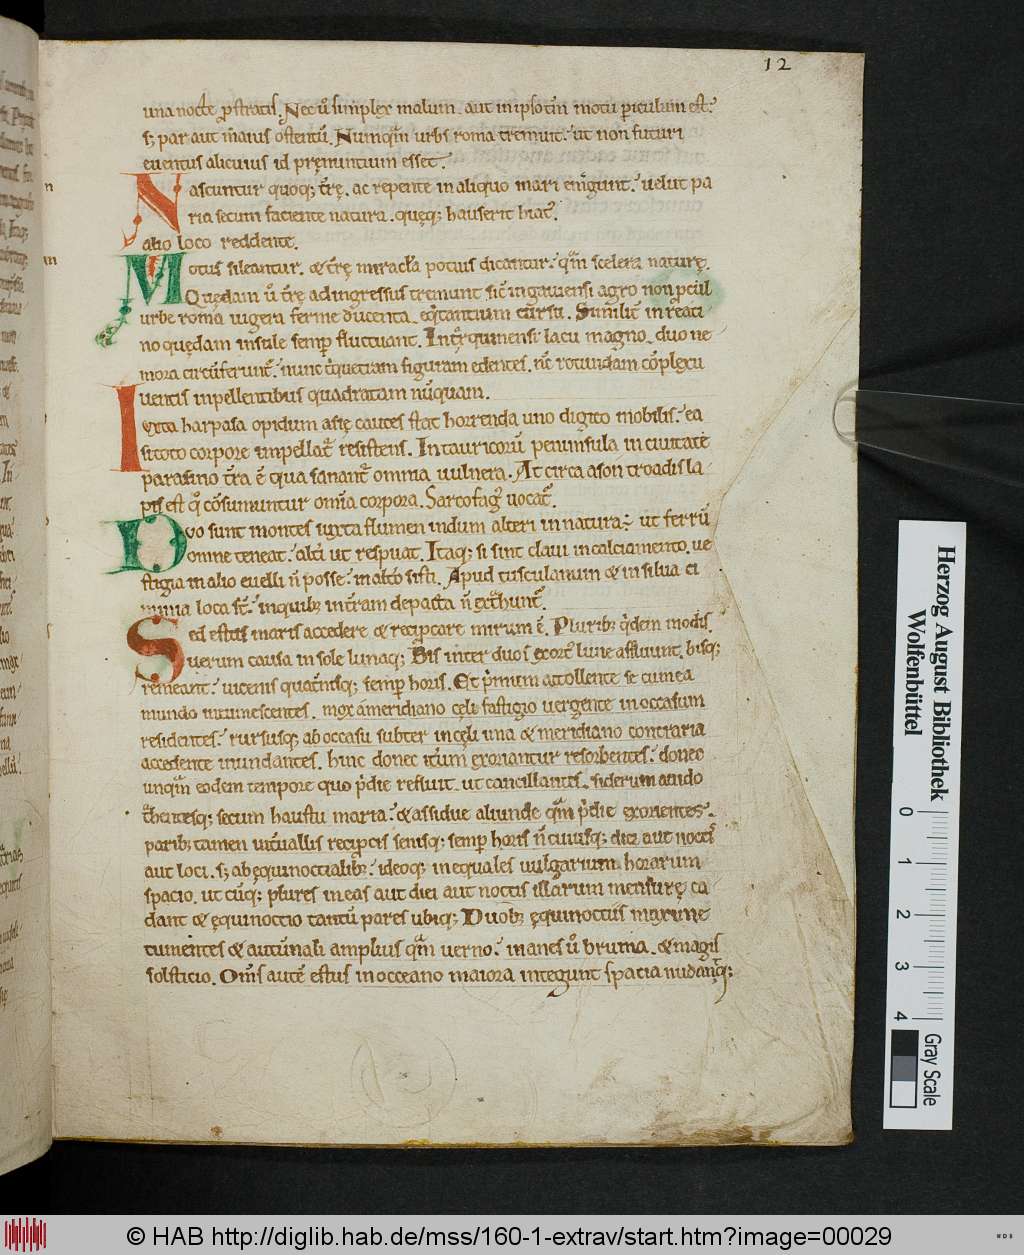 12
una nocte prostratis. Nec u̅ simplex malum. aut in ipso tm̅ motu periculum est.
s; par aut maius ostentu̅. Numqua̅ urbs roma tremuit. ut non futuri
euentus alicuius id pręnuntium esset.
Nascuntur quoq; t̅rę. ac repente in aliquo mari em̅gunt. uelut pa
ria secum faciente natura. quęq; hauserit hiat᷒.
alio loco reddente.
Motus sileantur. & t̅rę miracl̅a potius dicantur. qua̅ scelera naturę.
Quędam u̅ t̅rę ad ingressus tremunt. sic̅ in gauiensi agro non pcul
urbe roma iugera ferme ducenta. eq̅tantium cursu. Similit̅ in reati
no quędam insule semp fluctuant. In t̅rquinensi lacu magno. duo ne
mora circu̅ferunt̅. nunc t̅quetram figuram edentes. nc̅ rotundam co̅plexu
uentis inpellentibus quadratam nu̅quam.
Iuxta harpasa opidum asię cautes stat horrenda uno digito mobilis. ea
si toto corpore impellat̅ resistens. In tauricoru̅ peninsula in ciuitate
parasino t̅ra e̅ qua sanant̅ omnia uulnera. At circa ason troadis la
pis est q̅ co̅sumuntur om̅ia corpora. Sarcofag᷒ uocat̅.
Duo sunt montes iuxta flumen indum alteri in natura ÷ ut ferru̅
omne teneat. alt̅i ut respuat. Itaq; si sint claui in calciamento. ue
stigia in alio euelli n̅ posse. in alt̅o sisti. Apud tusculanum & in silua ci
minia loca st̅. in quib; in t̅ram depacta n̅ ext̅hunt̅.
Sed estus maris accedere & reciprocare mirum e̅. Plurib; q̅dem modis.
uerum causa in sole lunaq; Bis inter duos exort᷒ lune affluunt. bisq;
remeant. uicenis quat̅nisq; semp horis. Et p̅mum attollente se cum ea
mundo intumescentes. mox a meridiano cęli fastigio uergente in occasum
residentes. rursusq; ab occasu subter in cęli una & meridiano contraria
accedente inundantes. hinc donec it̅um exoriantur resorbentes. donec
unqua̅ eodem tempore quo p̅die refluit. ut cancillantes. siderum auido
t̅hentesq; secum haustu maria. & assidue aliunde qua̅ p̅die exorientes.
parib; tamen int̅uallis reciprocis senisq; semp horis n̅ cuiusq; diei aut noctis
aut loci. s; ab equinoctialib;. ideoq; inequales uulgarium horarum
spacio. ut cu̅q; plures in eas aut diei aut noctis illarum mensurę ca
dant & ęquinoctio tantu̅ pares ubiq; Duob; ęquinoctiis maxime
tumentes & autu̅nali amplius qua̅ uerno. inanes u̅ bruma. & magis
solsticio. Om̅s aute̅ estus in occeano maiora integunt spacia nudantq;
Herzog August Bibliothek
Wolfenbüttel
0 1 2 3 4
Gray Scale
© HAB http://diglib.hab.de/mss/160-1-extrav/start.htm?image=00029